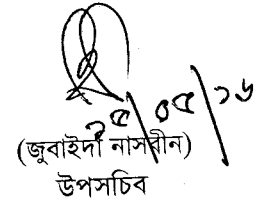 ২৫/০৫/১৬
(জুবাইদা নাসরীন)
উপসচিব